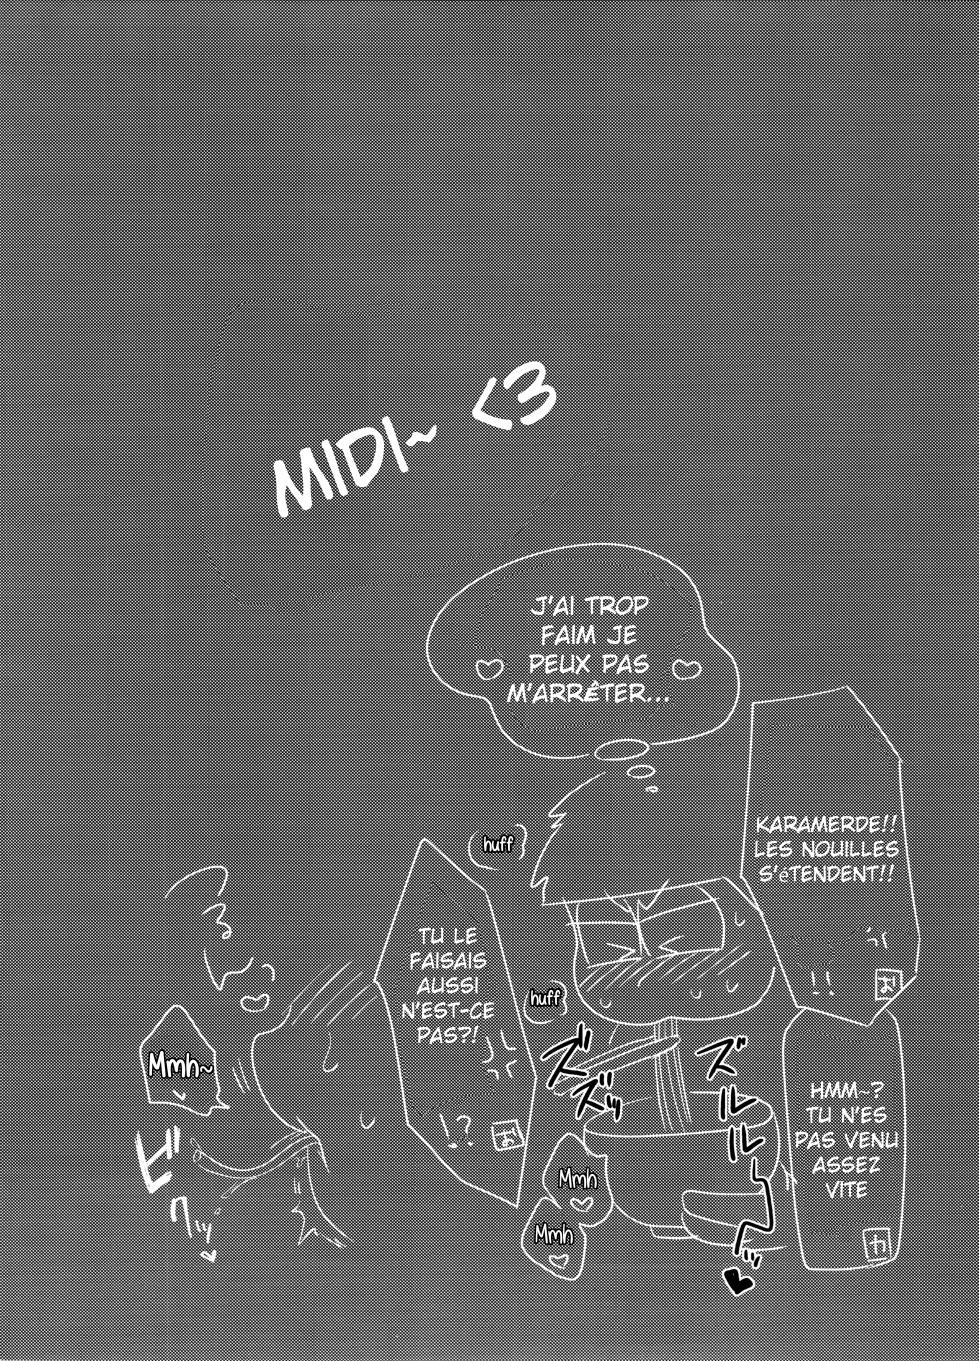 MIDI~ <3
J'AI TROP
FAIM JE
PEUX PAS
M'ARRÊTER...
KARAMERDE!!
LES NOUILLES
S'éTENDENT!!
!!
お
huff
TU LE
FAISAIS
AUSSI
N'EST-CE
PAS?!
!?
お
huff
HMM~?
TU N'ES
PAS VENU
ASSEZ
VITE
カ
Mmh~
ズ
ズッ
ズルルーッ
Mmh
Mmh
ビクッ